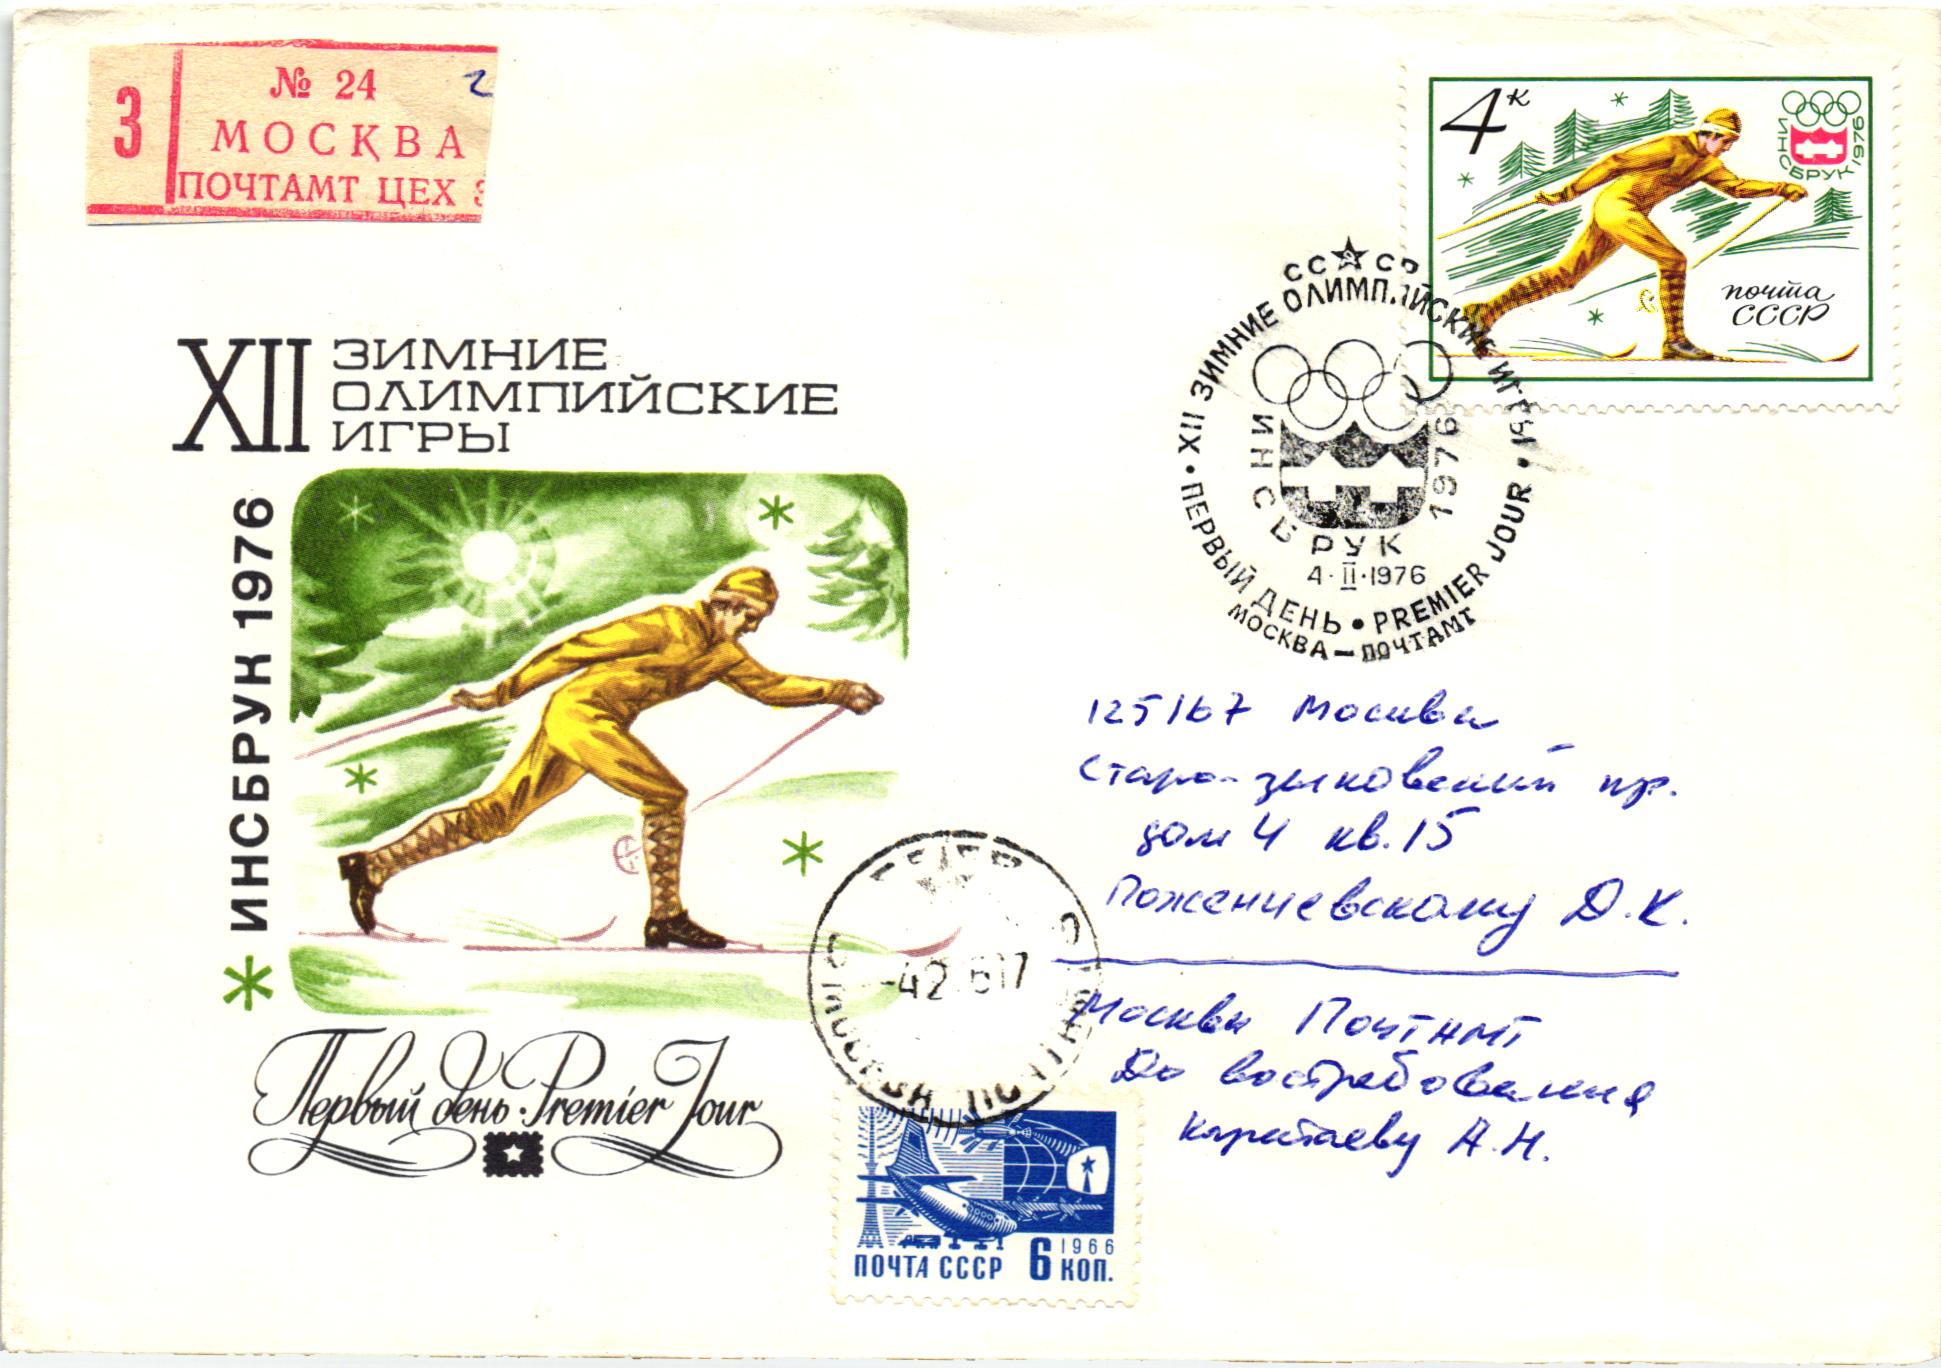 № 24
З
МОСКВА
ПОЧТАМТ ЦЕХ
4к
ИНСБРУК 1976
почта
СССР
СССР
XII ЗИМНИЕ ОЛИМПИЙСКИЕ ИГРЫ
ИНСБРУК 1976
4·II·1976
ПЕРВЫЙ ДЕНЬ • PREMIER JOUR
МОСКВА — ПОЧТАМТ
XII ЗИМНИЕ
ОЛИМПИЙСКИЕ
ИГРЫ
ИНСБРУК 1976
Первый день · Premier Jour
125167 Москва
Старо-зыковский пр.
дом 4 кв. 15
Пожениевскому Д.К.
Москва Почтамт
До востребования
Каратаеву А.Н.
МОСКВА
ПОЧТА СССР 6 КОП.
1966